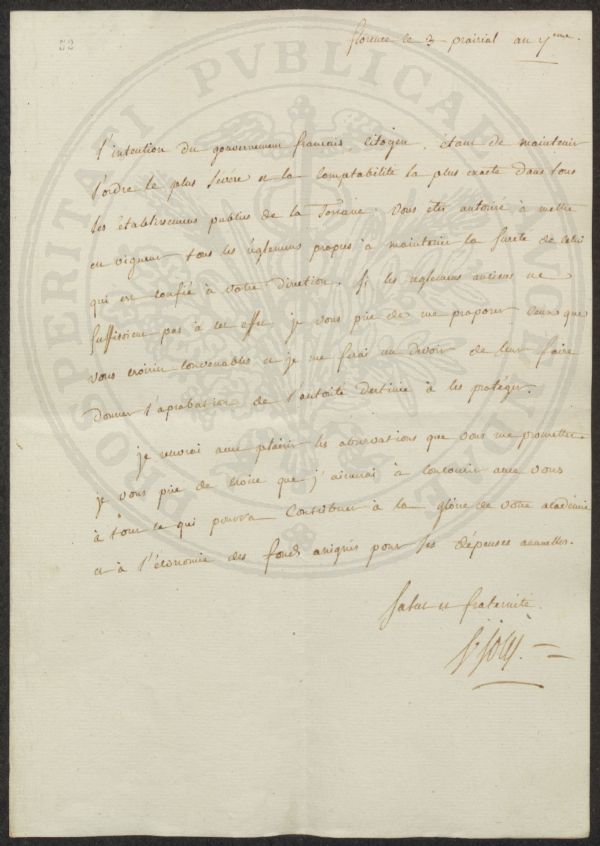 52
florence le 3 prairial an 7eme.
PROSPERITATI PVBLICAE AVGENDAE
l'intention du gouvernement francais, citoyen, étant de maintenir
l'ordre le plus severe et la comptabilité la plus exacte dans tous
les établissemens publics de la Toscane. Vous etes autorisé à mettre
en vigueur tous les réglemens propres à maintenir la sureté de celui
qui est confié à votre direction. Si les reglemens antérieurs ne
suffisoient pas à cet effet, je vous prie de me proposer ceux que
vous croiriez convenables et je me ferai un devoir de leur faire
donner l'aprobation de l'autorité destinée à les protéger.
je recevrai avec plaisir les observations que vous me promettez
je vous prie de croire que j'aimerai à concourir avec vous
à tout ce qui pourra contribuer à la gloire de votre académie
et à l'économie des fonds assignés pour ses dépenses annuelles.
Salut et fraternité.